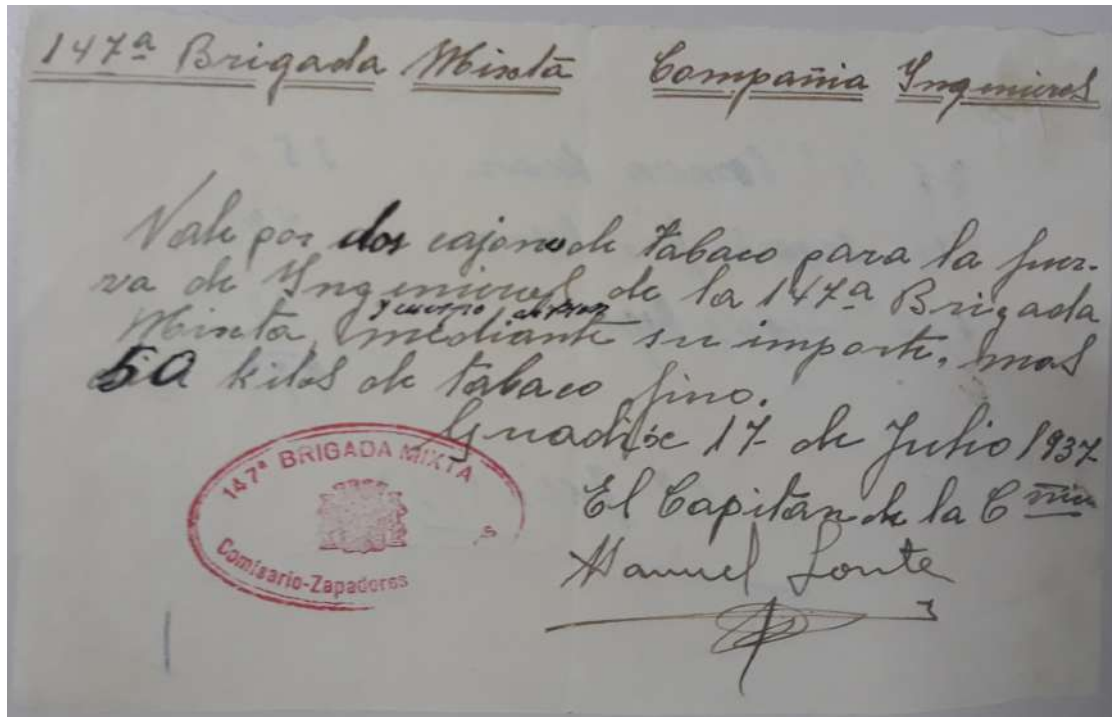 147ª Brigada Mixta Compañia Ingenieros
Vale por dos cajones de tabaco para la fuer-
za de Ingenieros de la 147ª Brigada
y cuerpo
Mixta, mediante su importe, mas
50 kilos de tabaco fino.
Guadix 17 de Julio 1937
El Capitán de la Cñia
Manuel
147ª BRIGADA MIXTA
Comisario-Zapadores